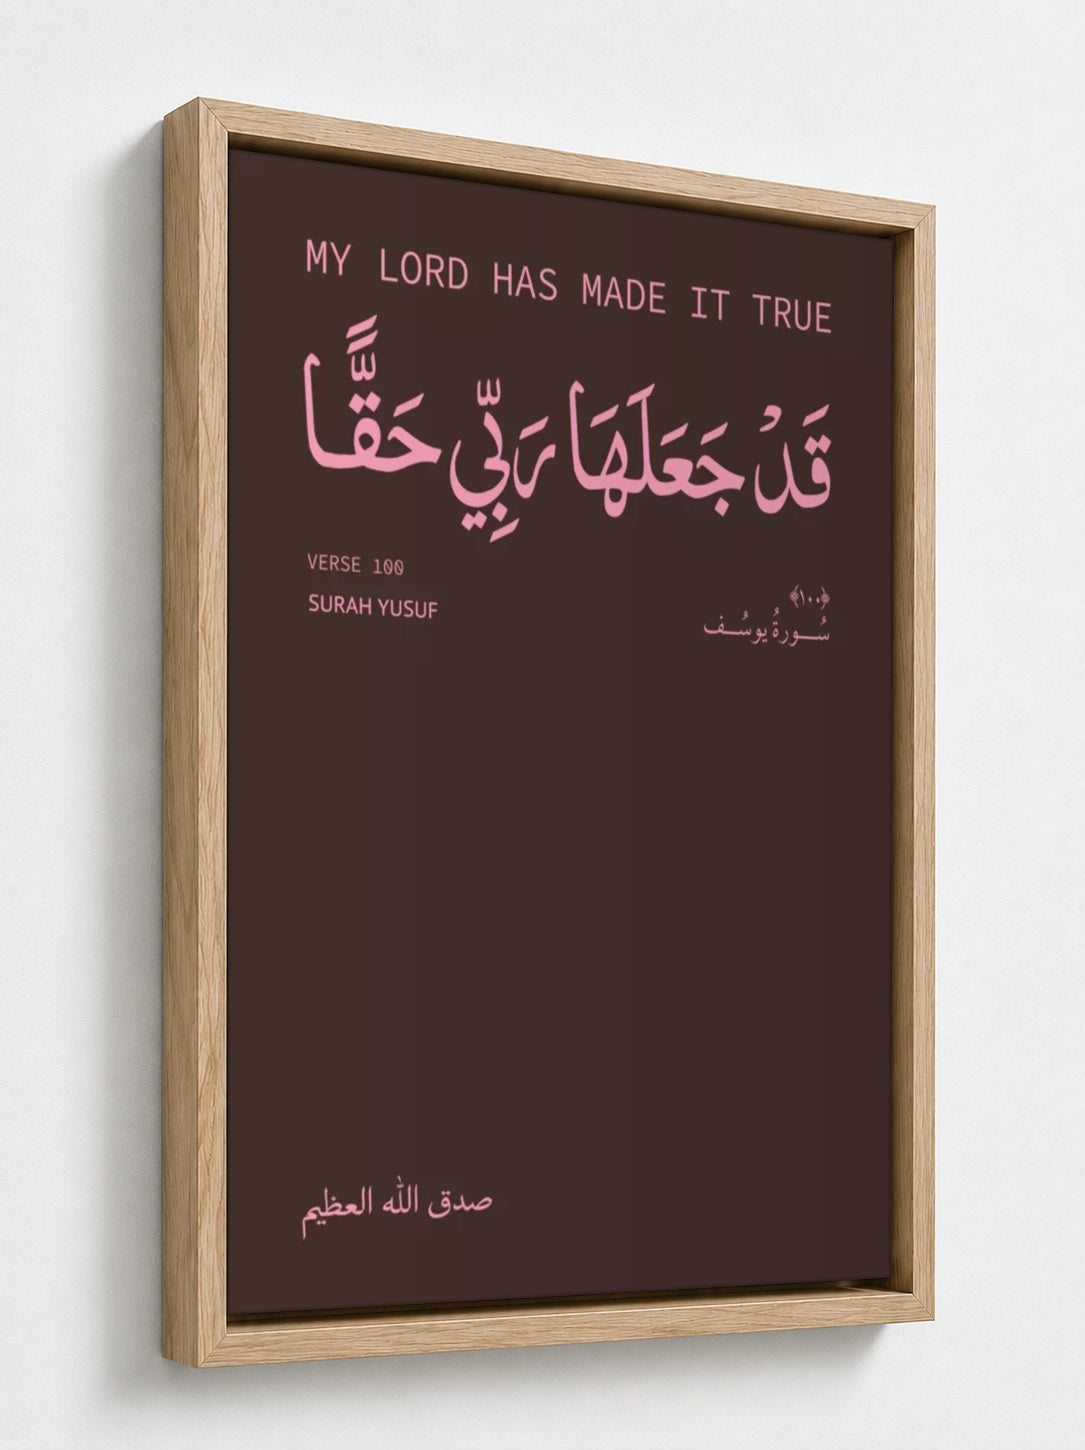 MY LORD HAS MADE IT TRUE
قَدْ جَعَلَهَا رَبِّي حَقًّا
VERSE 100
﴿١٠٠﴾
SURAH YUSUF
سُـورةُ يوسُـف
صدق الله العظيم